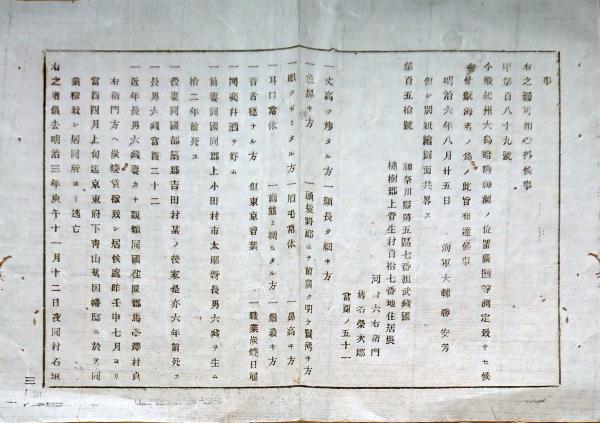 事
右之通可相心得候事
甲第百八十九號
今般紀州大島暗礁神瀬ノ位置廣□等測定致サセ候
條航海者ノ爲メ此旨布達候事
明治六年八月廿五日　海軍大輔勝安芳
但シ別紙繪圖面共畧ス
第百五拾號
神奈川縣第五區七番組武藏國
橘樹郡上菅生村百拾七番地住居農
河□六右衛門
舊名榮次郎
當酉ノ五十一
一丈高ク瘠タル方　一顔長ク細キ方
一色黒キ方　一頭髪野郎ニテ前廣ク明シ鬢薄キ方
一眼クボミタル方　一眉毛常体　一鼻高キ方
一耳口常体　一齒揃タル方　一髭濃キ方
一音舌穏ナル方　但東京言葉　一職業炭燒日雇
一間々丼酒ヲ好ム
一前妻同國同郡上小田村市太郎姉長男六藏ヲ生ム
拾二年前死ス
一後妻同國都築郡吉田村某ノ後家是亦六年前死ス
一長男六藏當酉二十二
一近年長男六藏妻カナ親類同國荏原郡馬引澤村貞
右衛門方ヘ炭燒賃稼致シ居候處昨壬申七月ヨリ
當酉四月上旬迄東京東府下青山舊因幡邸ニ於テ同
業稼致シ居同所ヨリ逃亡
右之者儀去明治三年庚午十一月十二日夜同村石垣
三